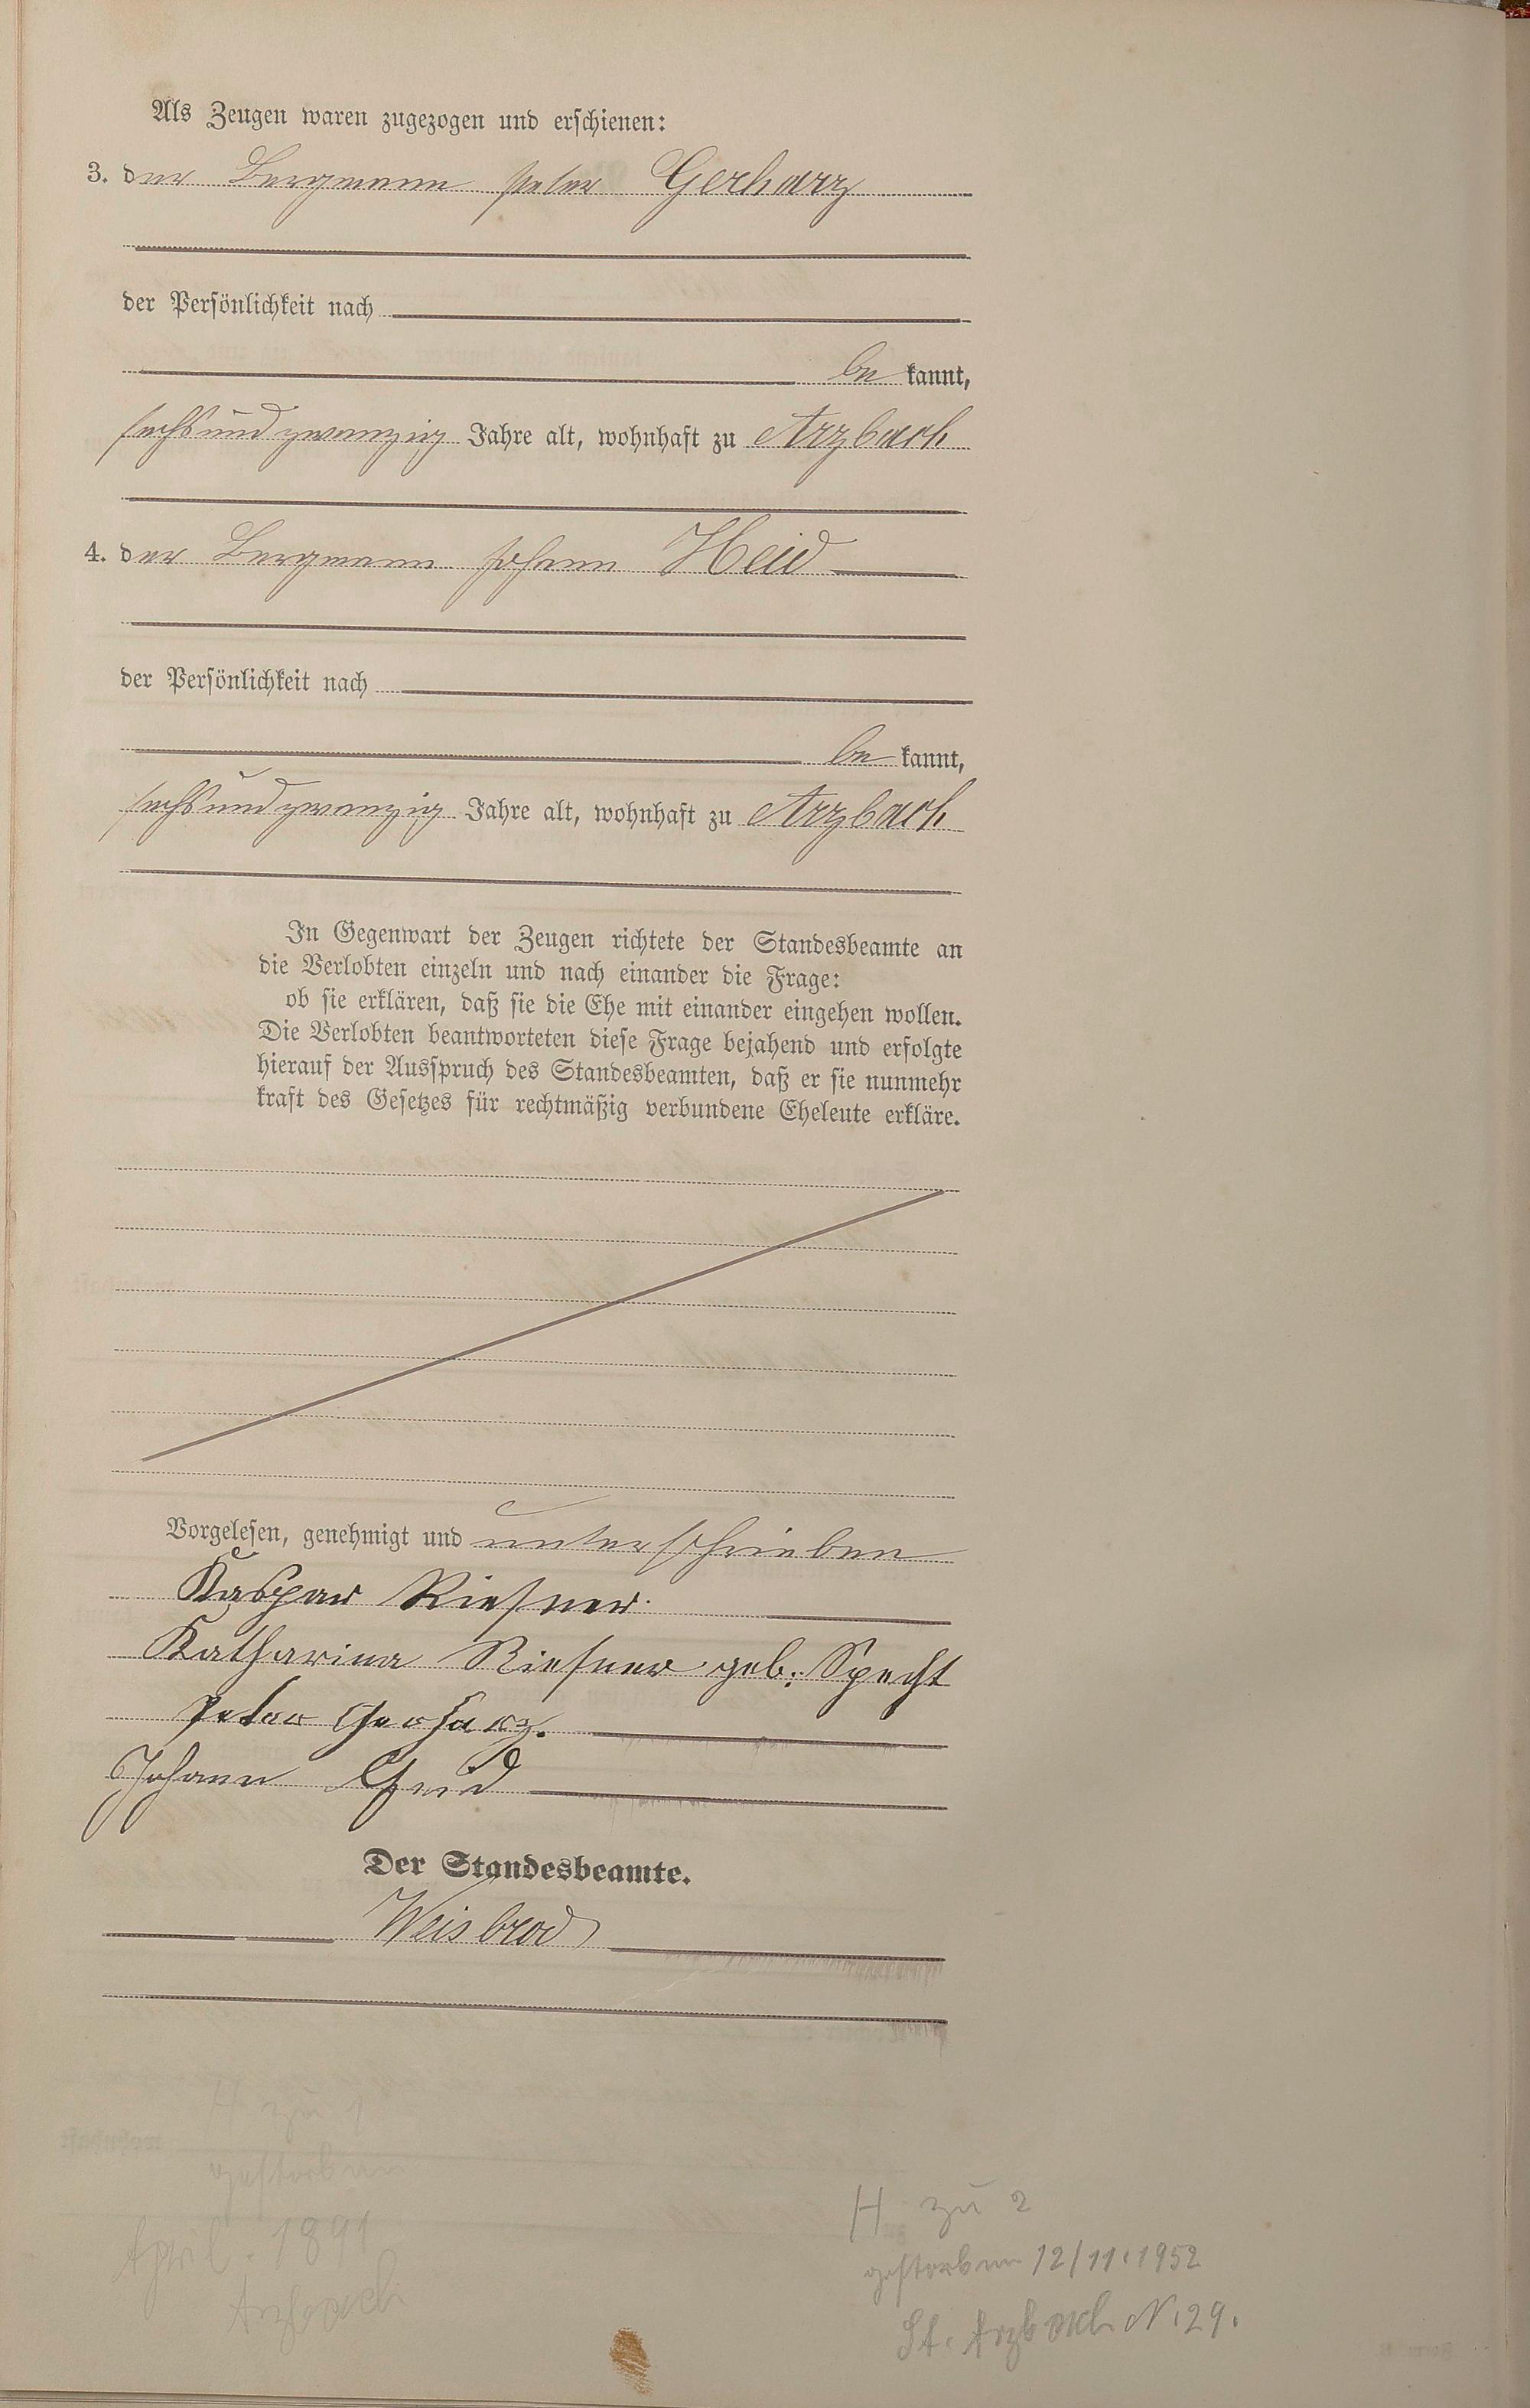 Als Zeugen waren zugezogen und erschienen:
3. der Bergmann Peter Gerharz
der Persönlichkeit nach
be kannt,
sechsundzwanzig Jahre alt, wohnhaft zu Arzbach
4. der Bergmann Johann Heid
der Persönlichkeit nach
be kannt,
sechsundzwanzig Jahre alt, wohnhaft zu Arzbach
In Gegenwart der Zeugen richtete der Standesbeamte an
die Verlobten einzeln und nach einander die Frage:
ob sie erklären, daß sie die Ehe mit einander eingehen wollen.
Die Verlobten beantworteten diese Frage bejahend und erfolgte
hierauf der Ausspruch des Standesbeamten, daß er sie nunmehr
kraft des Gesetzes für rechtmäßig verbundene Eheleute erkläre.
Vorgelesen, genehmigt und unterschrieben
Kaspar Riesner.
Katharina Riesner geb: Specht
Peter Gerharz.
Johann Heid
Der Standesbeamte.
Weisbrod
H zu 1
gestorben
April 1891
Arzbach
H zu 2
gestorben 12/11.1952
St. Arzbach N.29.